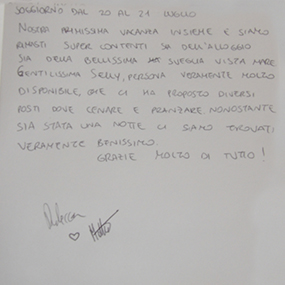 SOGGIORNO DAL 20 AL 21 LUGLIO
NOSTRA PRIMISSIMA VACANZA INSIEME E SIAMO
RIMASTI SUPER CONTENTI SIA DELL'ALLOGGIO
SIA DELLA BELLISSIMA SVEGLIA VISTA MARE
GENTILISSIMA SELLY, PERSONA VERAMENTE MOLTO
DISPONIBILE, CHE CI HA PROPOSTO DIVERSI
POSTI DOVE CENARE E PRANZARE. NONOSTANTE
SIA STATA UNA NOTTE CI SIAMO TROVATI
VERAMENTE BENISSIMO.
GRAZIE MOLTO DI TUTTO!